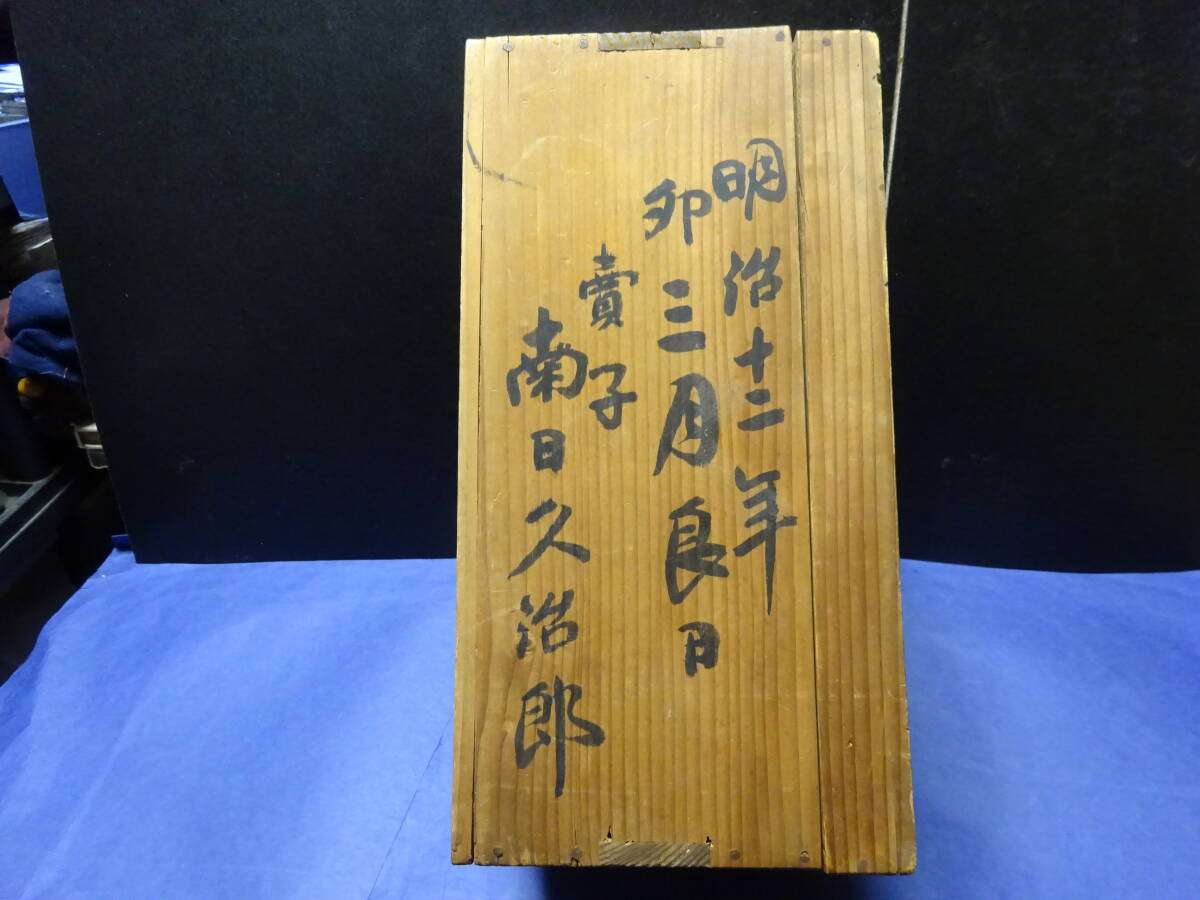 明治十二年
卯三月良日
賣子
南日久治郎